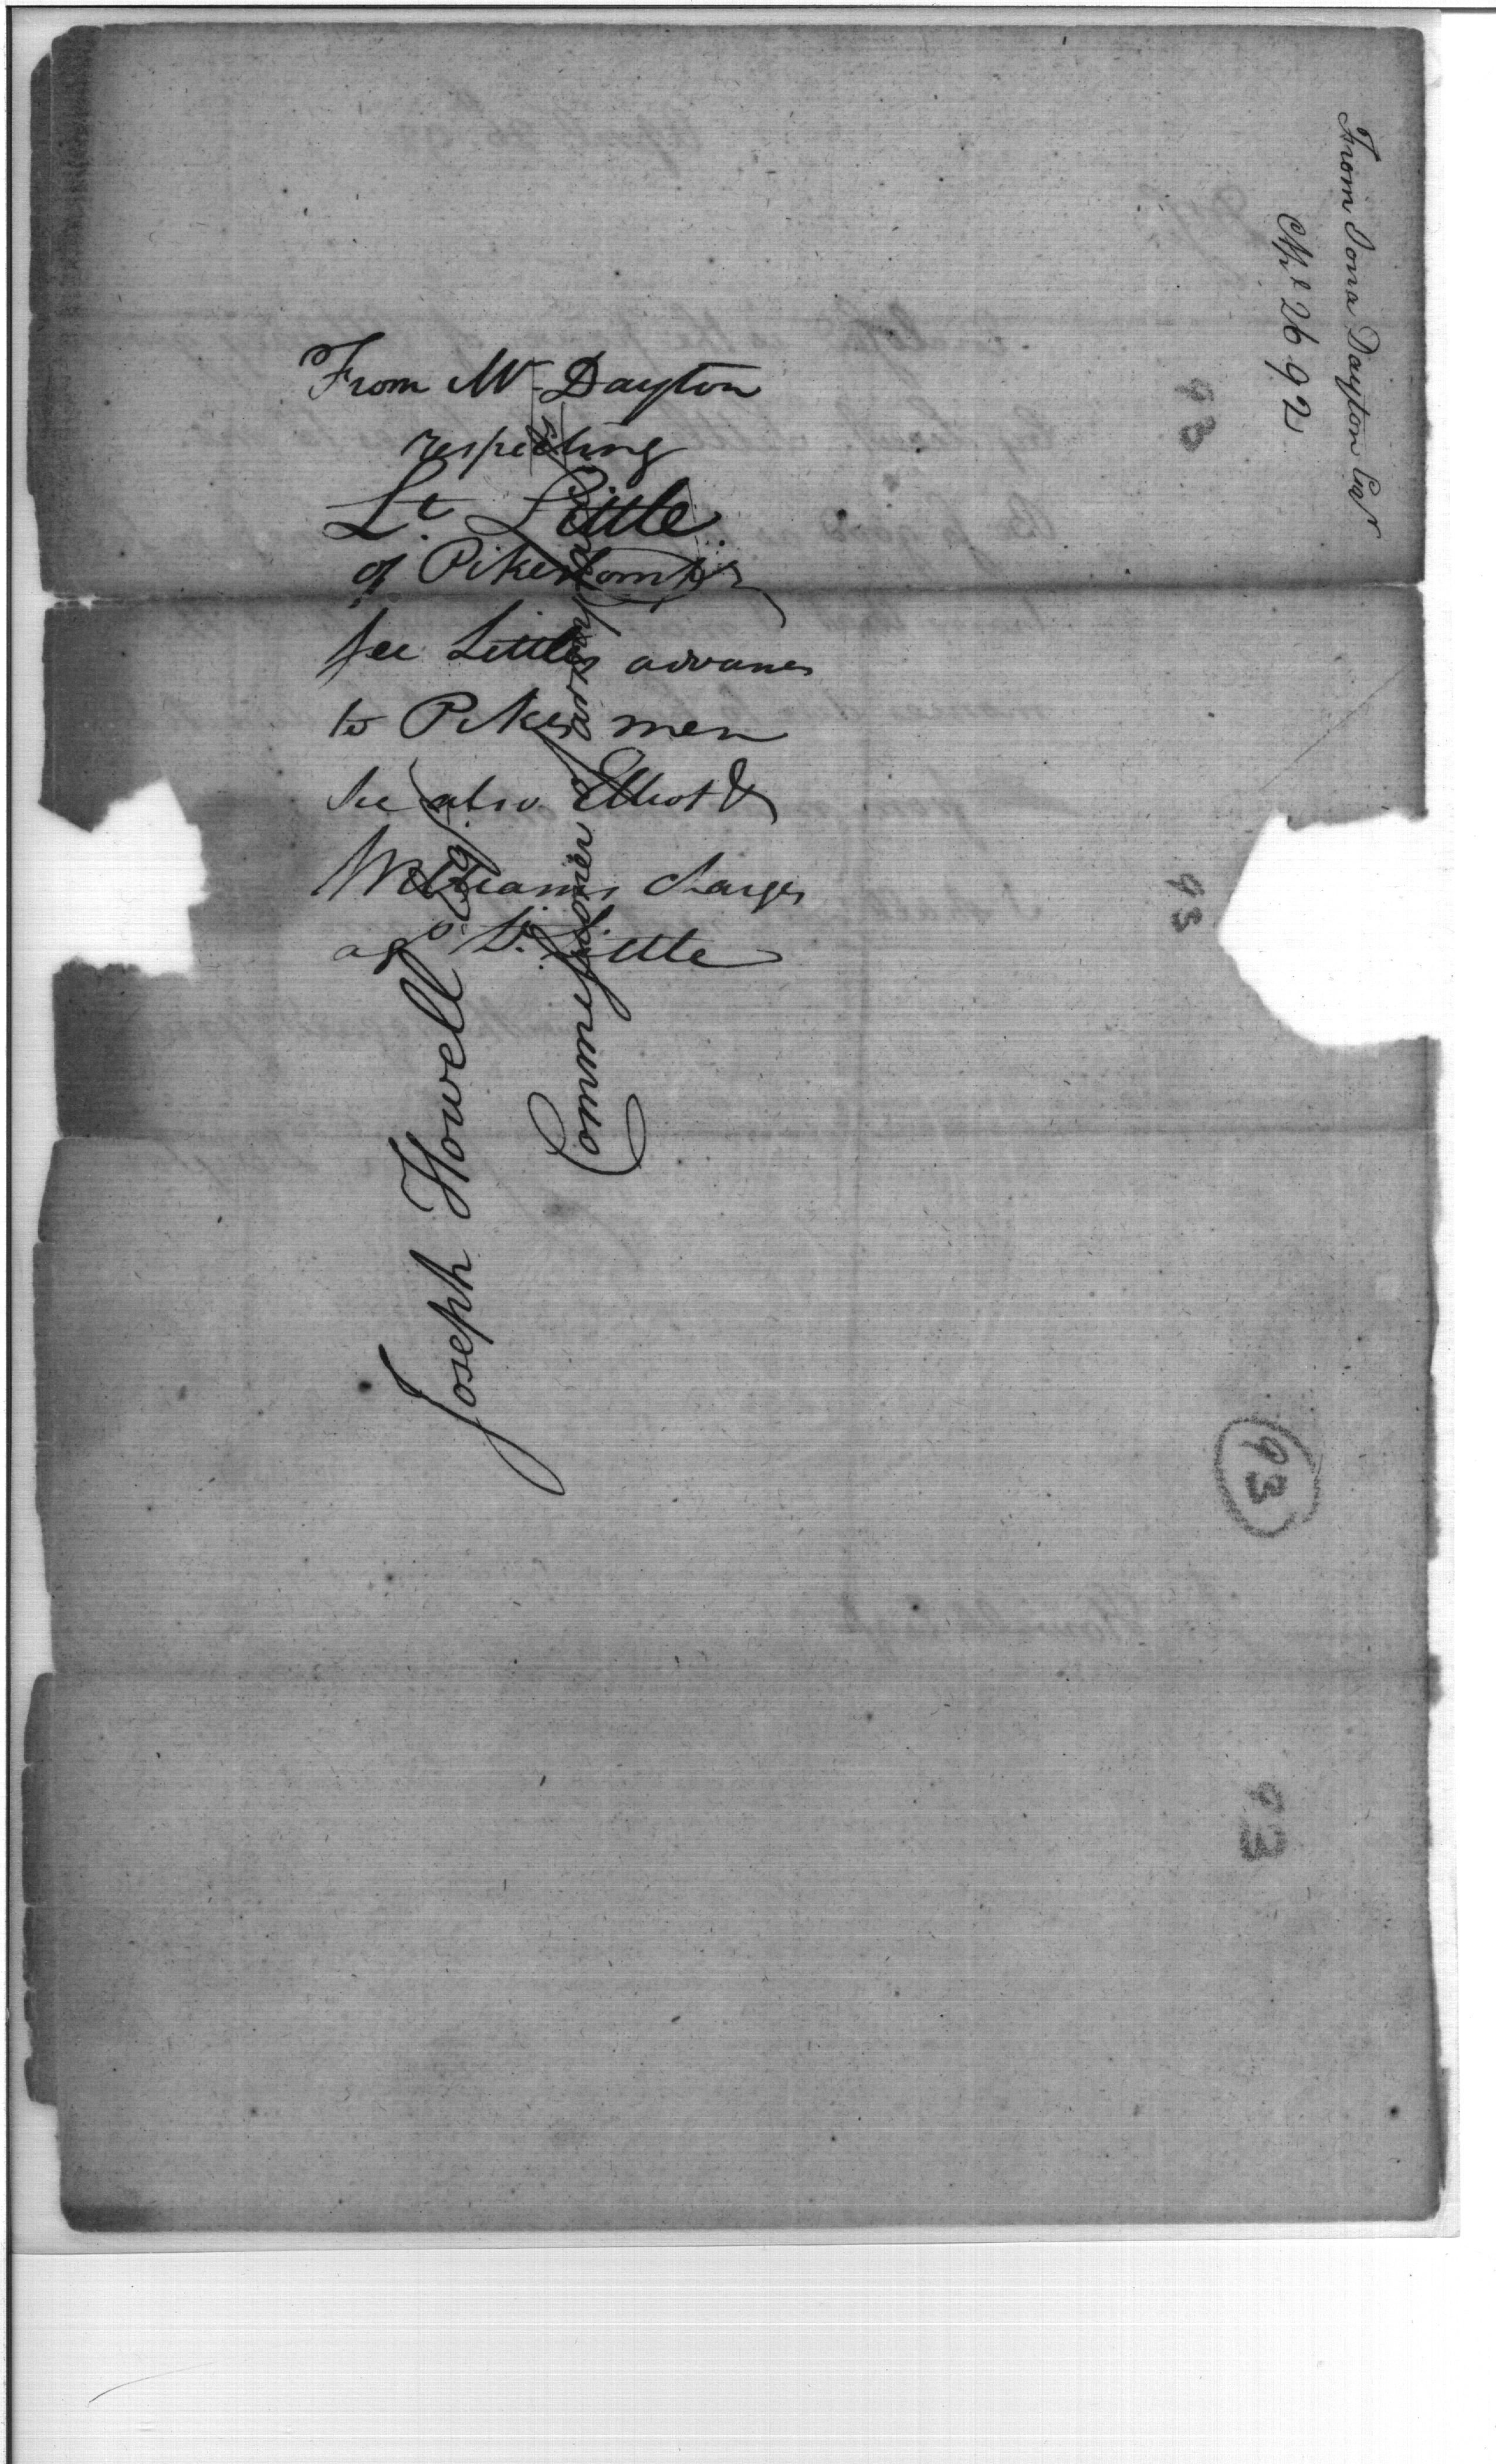 From Jona Dayton Esqr
Apl 26 92
From Mr Dayton
respecting
Lt. Little
of Pikes Compy
see Littles advances
to Pikes men
see also Elliot &
Williams charges
agst Lt. Little
Joseph Howell Esqr
Commissioner of army accounts
93
93
93
93